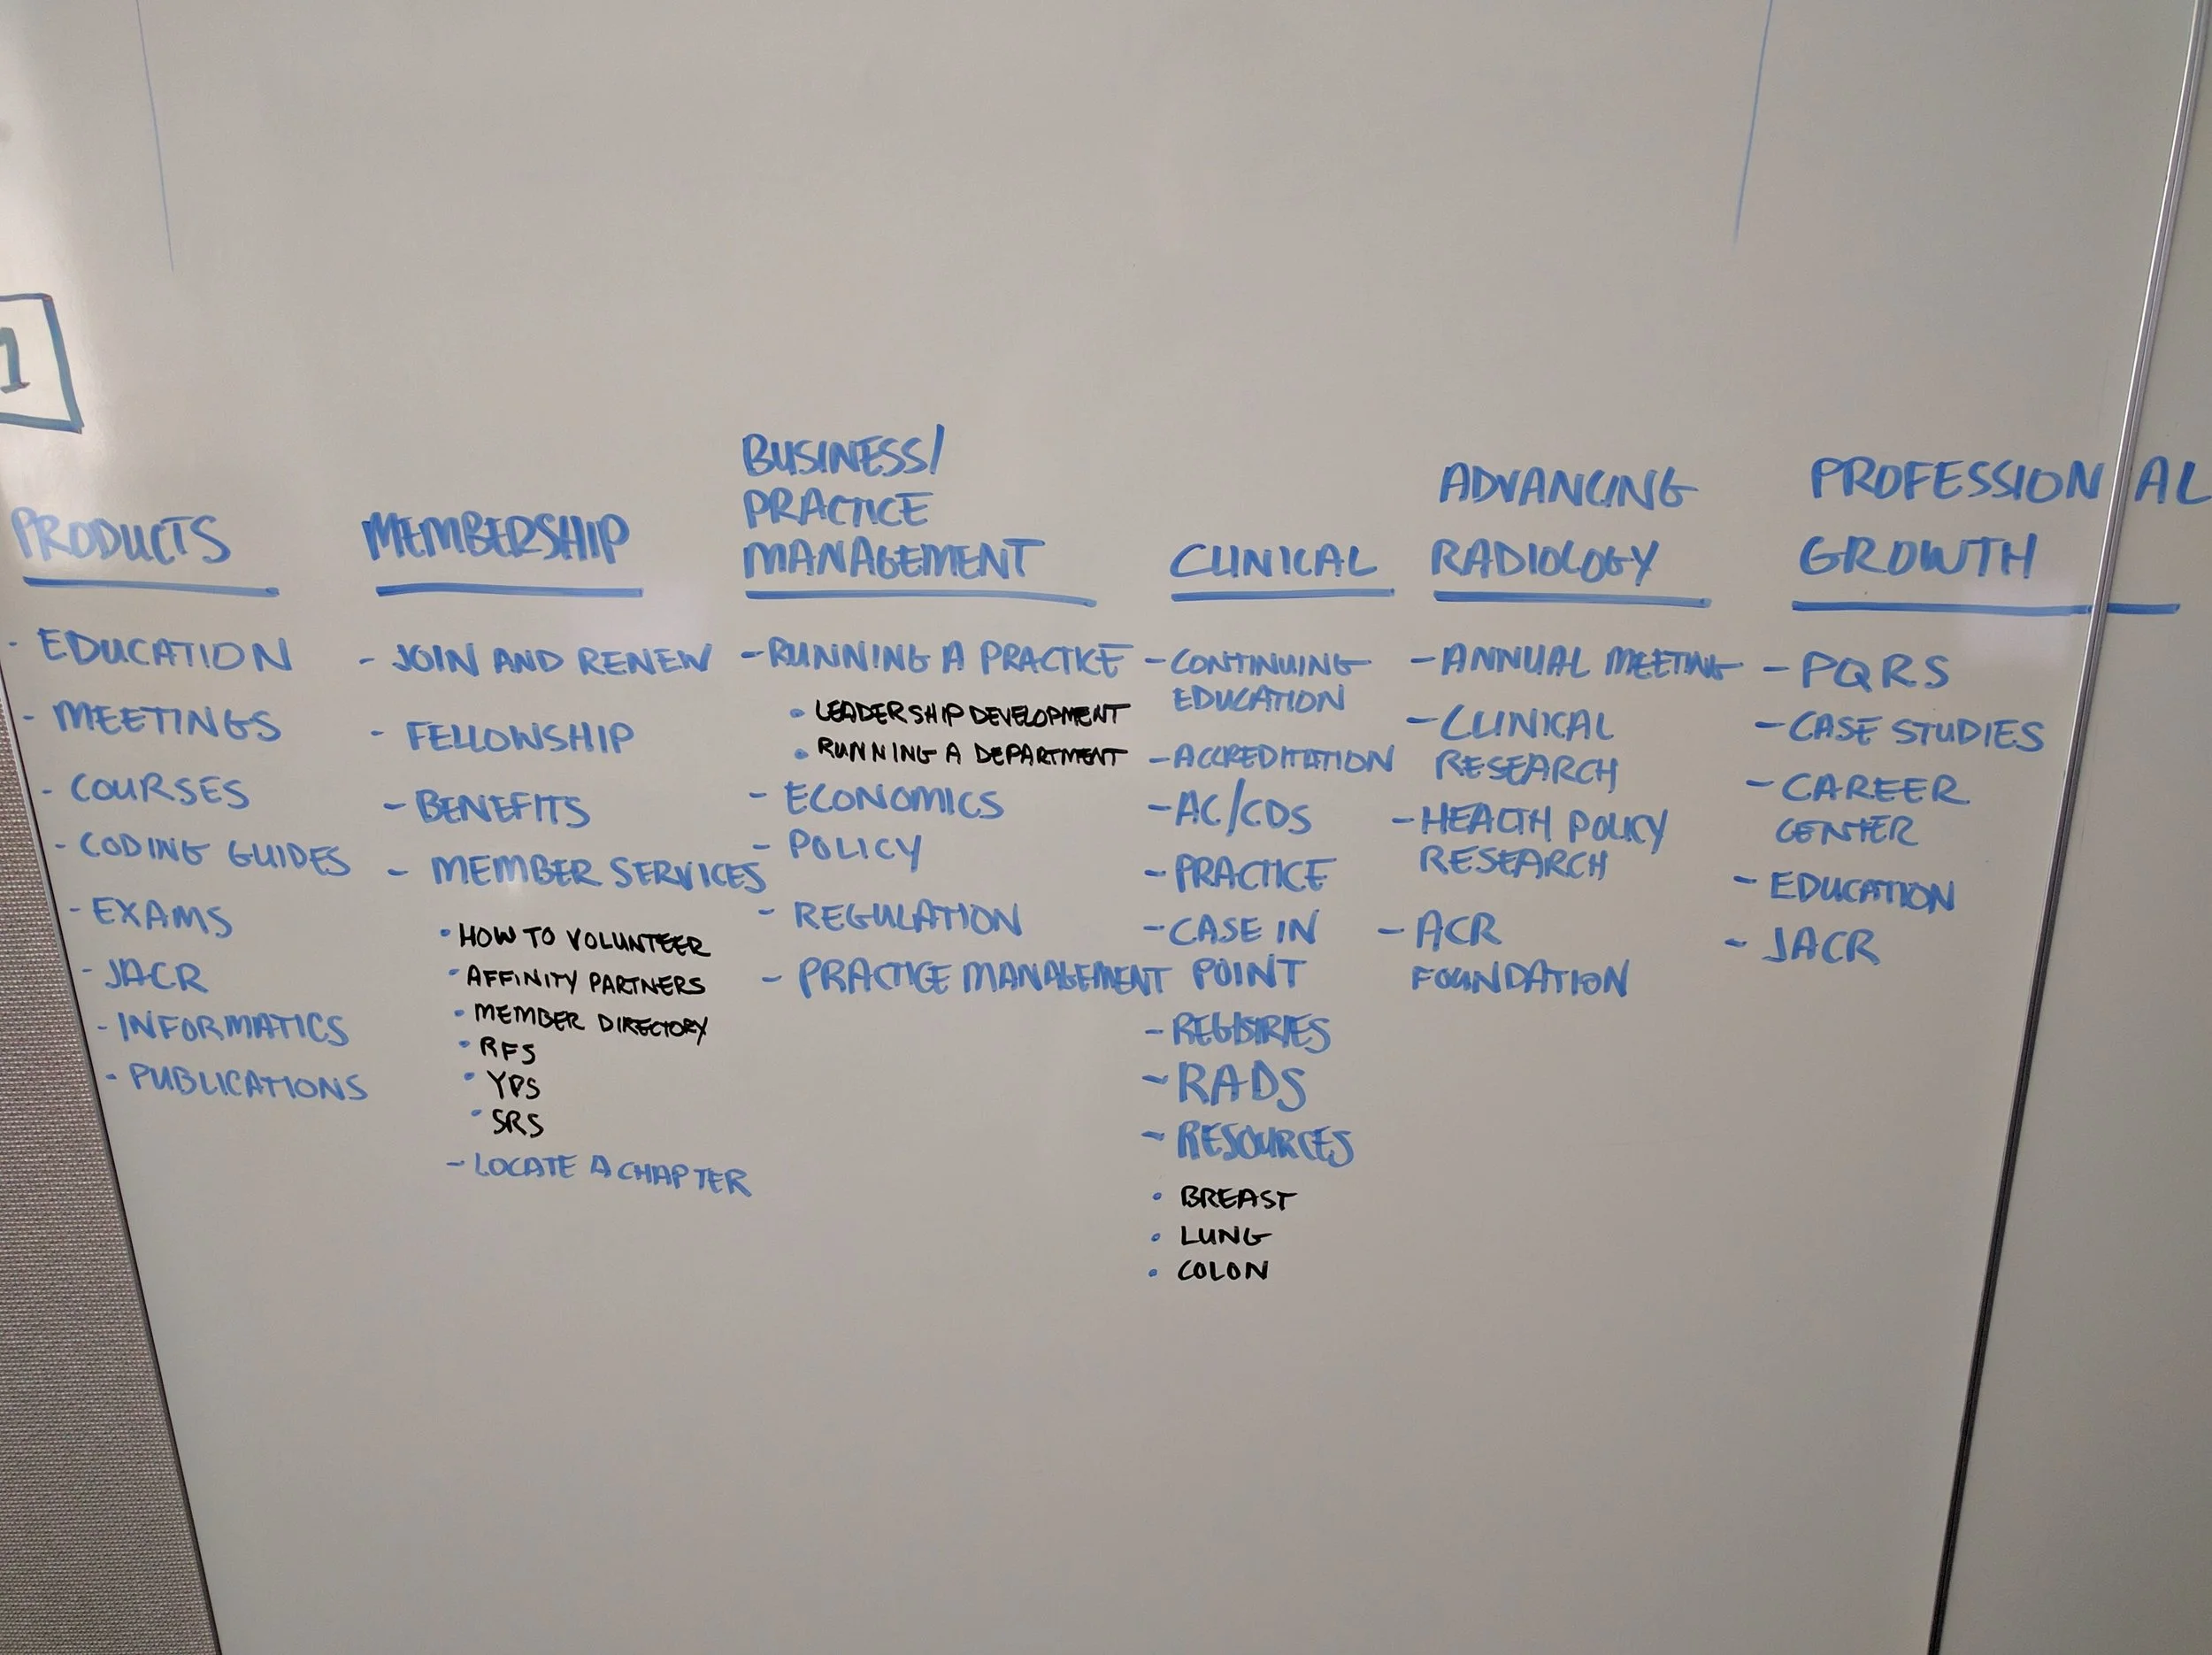 1
PRODUCTS
- EDUCATION
- MEETINGS
- COURSES
- CODING GUIDES
- EXAMS
- JACR
- INFORMATICS
- PUBLICATIONS
MEMBERSHIP
- JOIN AND RENEW
- FELLOWSHIP
- BENEFITS
- MEMBER SERVICES
• HOW TO VOLUNTEER
• AFFINITY PARTNERS
• MEMBER DIRECTORY
• RFS
• YPS
• SRS
- LOCATE A CHAPTER
BUSINESS/
PRACTICE
MANAGEMENT
- RUNNING A PRACTICE
• LEADERSHIP DEVELOPMENT
• RUNNING A DEPARTMENT
- ECONOMICS
- POLICY
- REGULATION
- PRACTICE MANAGEMENT
CLINICAL
- CONTINUING
EDUCATION
- ACCREDITATION
- AC/CDS
- PRACTICE
- CASE IN
POINT
- REGISTRIES
- RADS
- RESOURCES
• BREAST
• LUNG
• COLON
ADVANCING
RADIOLOGY
- ANNUAL MEETING
- CLINICAL
RESEARCH
- HEALTH POLICY
RESEARCH
- ACR
FOUNDATION
PROFESSIONAL
GROWTH
- PQRS
- CASE STUDIES
- CAREER
CENTER
- EDUCATION
- JACR